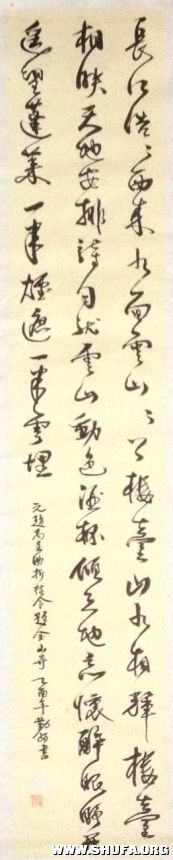 長江浩〻西來水面雲山〻上樓臺山水相輝樓臺
相映天地安排詩句就雲山動色酒杯傾天地忘懷醉眼睜開
遙望蓬萊一半煙遮一半雲埋
元趙禹圭曲折桂令題金山寺 乙酉年勤書
WWW.SHUFA.ORG